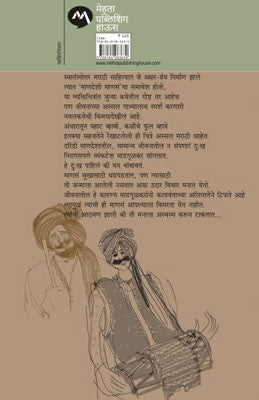 मेहता
पब्लिशिंग
हाऊस
www.mehtapublishinghouse.com
स्वातंत्र्योत्तर मराठी साहित्यात जे अक्षर-ग्रंथ निर्माण झाले
त्यात 'माणदेशी माणसं'चा समावेश होतो.
या व्यक्तिचित्रांत जुन्या कथेतील गोष्ट तर आहेच
पण जीवनाच्या अस्सल गाभ्यालाच स्पर्श करणारी
नवलकथेची किमयादेखील आहे.
अंधारातून पहाट व्हावी, कळीचे फूल व्हावे
इतक्या सहजतेने रेखाटलेली ही चित्रे अस्सल मराठी आहेत.
दरिद्री माणदेशातील, सामान्य जीवनातील न संपणारं दुःख
निरागसपणे व्यंकटेश माडगूळकर सांगतात.
हे दुःख पाहिलं की मन थांबावतं.
माणसं सुखासाठी धडपडतात, पण त्यासाठी
ती जन्माला आलेली नसतात असा उदार विचार मनात येतो.
जीवनातील हे कारुण्य माडगूळकरांनी कलावंताच्या अलिप्ततेने टिपले आहे
त्यामुळं त्यांची ही माणसं आपल्याला विसरता येत नाहीत.
त्यांची आठवण झाली की ती मनाला अस्वस्थ करून टाकतात...